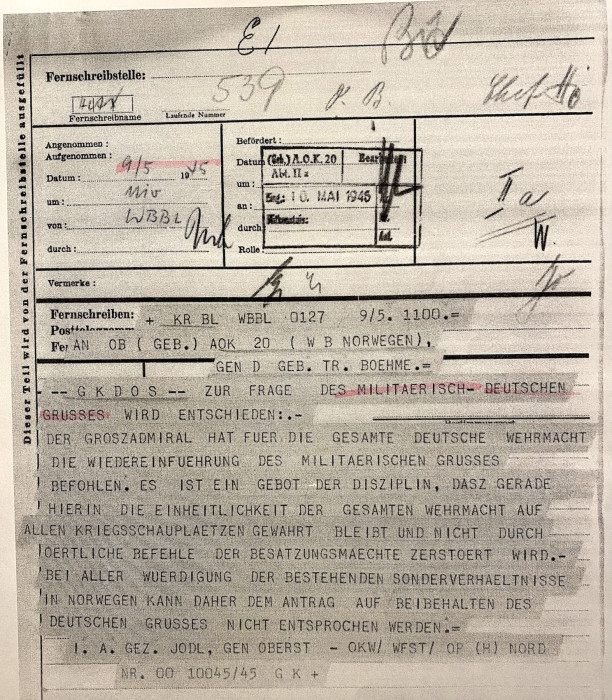 E1
Fernschreibstelle:
539
Fernschreibname
Laufende Nummer
Dieser Teil wird von der Fernschreibstelle ausgefüllt
Angenommen :
Aufgenommen :
Datum : 9/5 1945
um :
von : WBBL
durch :
Befördert :
Datum
um :
an :
durch
Rolle :
(Geb.) A.O.K. 20
Abt. IIa
Eing.: 10. MAI 1945
II a
W.
Vermerke :
Fernschreiben: + KR BL WBBL 0127 9/5. 1100.=
Posttelegramm
AN OB ( GEB.) AOK 20 ( W B NORWEGEN),
GEN D GEB. TR. BOEHME.=
-- GKDOS -- ZUR FRAGE DES MILITAERISCH- DEUTSCHEN
GRUSSES WIRD ENTSCHIEDEN:.-
DER GROSZADMIRAL HAT FUER DIE GESAMTE DEUTSCHE WEHRMACHT
DIE WIEDEREINFUEHRUNG DES MILITAERISCHEN GRUSSES
BEFOHLEN. ES IST EIN GEBOT DER DISZIPLIN, DASZ GERADE
HIERIN DIE EINHEITLICHKEIT DER GESAMTEN WEHRMACHT AUF
ALLEN KRIEGSSCHAUPLAETZEN GEWAHRT BLEIBT UND NICHT DURCH
OERTLICHE BEFEHLE DER BESATZUNGSMAECHTE ZERSTOERT WIRD.-
BEI ALLER WUERDIGUNG DER BESTEHENDEN SONDERVERHAELTNISSE
IN NORWEGEN KANN DAHER DEM ANTRAG AUF BEIBEHALTEN DES
DEUTSCHEN GRUSSES NICHT ENTSPROCHEN WERDEN.=
I. A. GEZ. JODL, GEN OBERST - OKW/ WFST/ OP (H) NORD
NR. 00 10045/45 G K +